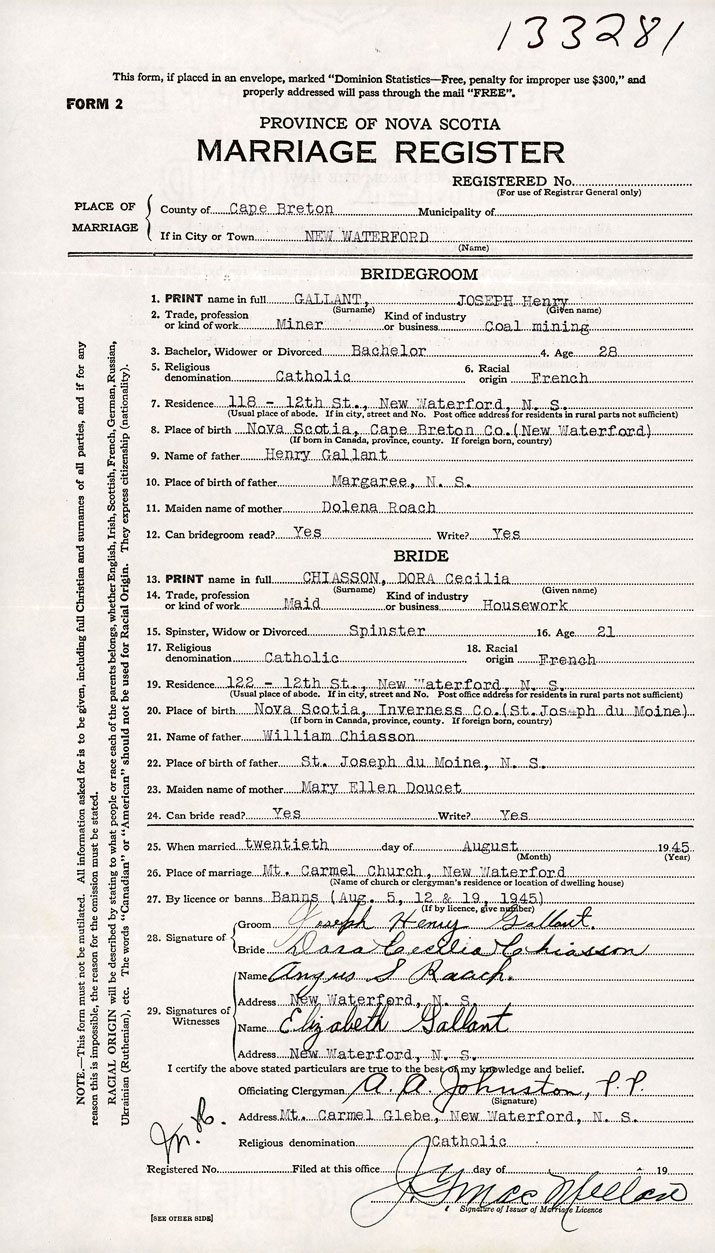 133281
This form, if placed in an envelope, marked "Dominion Statistics—Free, penalty for improper use $300," and
properly addressed will pass through the mail "FREE".
FORM 2
PROVINCE OF NOVA SCOTIA
MARRIAGE REGISTER
REGISTERED No.
(For use of Registrar General only)
PLACE OF MARRIAGE
County of Cape Breton Municipality of
If in City or Town NEW WATERFORD
(Name)
BRIDEGROOM
1. PRINT name in full GALLANT, JOSEPH Henry
(Surname) (Given name)
2. Trade, profession or kind of work Miner Kind of industry or business Coal mining
3. Bachelor, Widower or Divorced Bachelor 4. Age 28
5. Religious denomination Catholic 6. Racial origin French
7. Residence 118 - 12th St., New Waterford, N. S.
(Usual place of abode. If in city, street and No. Post office address for residents in rural parts not sufficient)
8. Place of birth Nova Scotia, Cape Breton Co.(New Waterford)
(If born in Canada, province, county. If foreign born, country)
9. Name of father Henry Gallant
10. Place of birth of father Margaree, N. S.
11. Maiden name of mother Dolena Roach
12. Can bridegroom read? Yes Write? Yes
BRIDE
13. PRINT name in full CHIASSON, DORA Cecilia
(Surname) (Given name)
14. Trade, profession or kind of work Maid Kind of industry or business Housework
15. Spinster, Widow or Divorced Spinster 16. Age 21
17. Religious denomination Catholic 18. Racial origin French
19. Residence 122 - 12th St., New Waterford, N. S.
(Usual place of abode. If in city, street and No. Post office address for residents in rural parts not sufficient)
20. Place of birth Nova Scotia, Inverness Co.(St.Joseph du Moine)
(If born in Canada, province, county. If foreign born, country)
21. Name of father William Chiasson
22. Place of birth of father St. Joseph du Moine, N. S.
23. Maiden name of mother Mary Ellen Doucet
24. Can bride read? Yes Write? Yes
25. When married twentieth day of August 1945
(Month) (Year)
26. Place of marriage Mt. Carmel Church, New Waterford
(Name of church or clergyman's residence or location of dwelling house)
27. By licence or banns Banns (Aug. 5, 12 & 19, 1945)
(If by licence, give number)
28. Signature of
Groom Joseph Henry Gallant.
Bride Dora Cecilia Chiasson
29. Signatures of Witnesses
Name Angus S Roach.
Address New Waterford, N. S.
Name Elizabeth Gallant
Address New Waterford, N. S.
I certify the above stated particulars are true to the best of my knowledge and belief.
Officiating Clergyman A. A. Johnston, P.P.
(Signature)
Address Mt. Carmel Glebe, New Waterford, N. S.
Religious denomination Catholic
Registered No. Filed at this office day of 19
Signature of Issuer of Marriage Licence
[SEE OTHER SIDE]
NOTE.—This form must not be mutilated. All information asked for is to be given, including full Christian and surnames of all parties, and if for any
reason this is impossible, the reason for the omission must be stated.
RACIAL ORIGIN will be described by stating to what people or race each of the parents belongs, whether English, Irish, Scottish, French, German, Russian,
Ukrainian (Ruthenian), etc. The words "Canadian" or "American" should not be used for Racial Origin. They express citizenship (nationality).